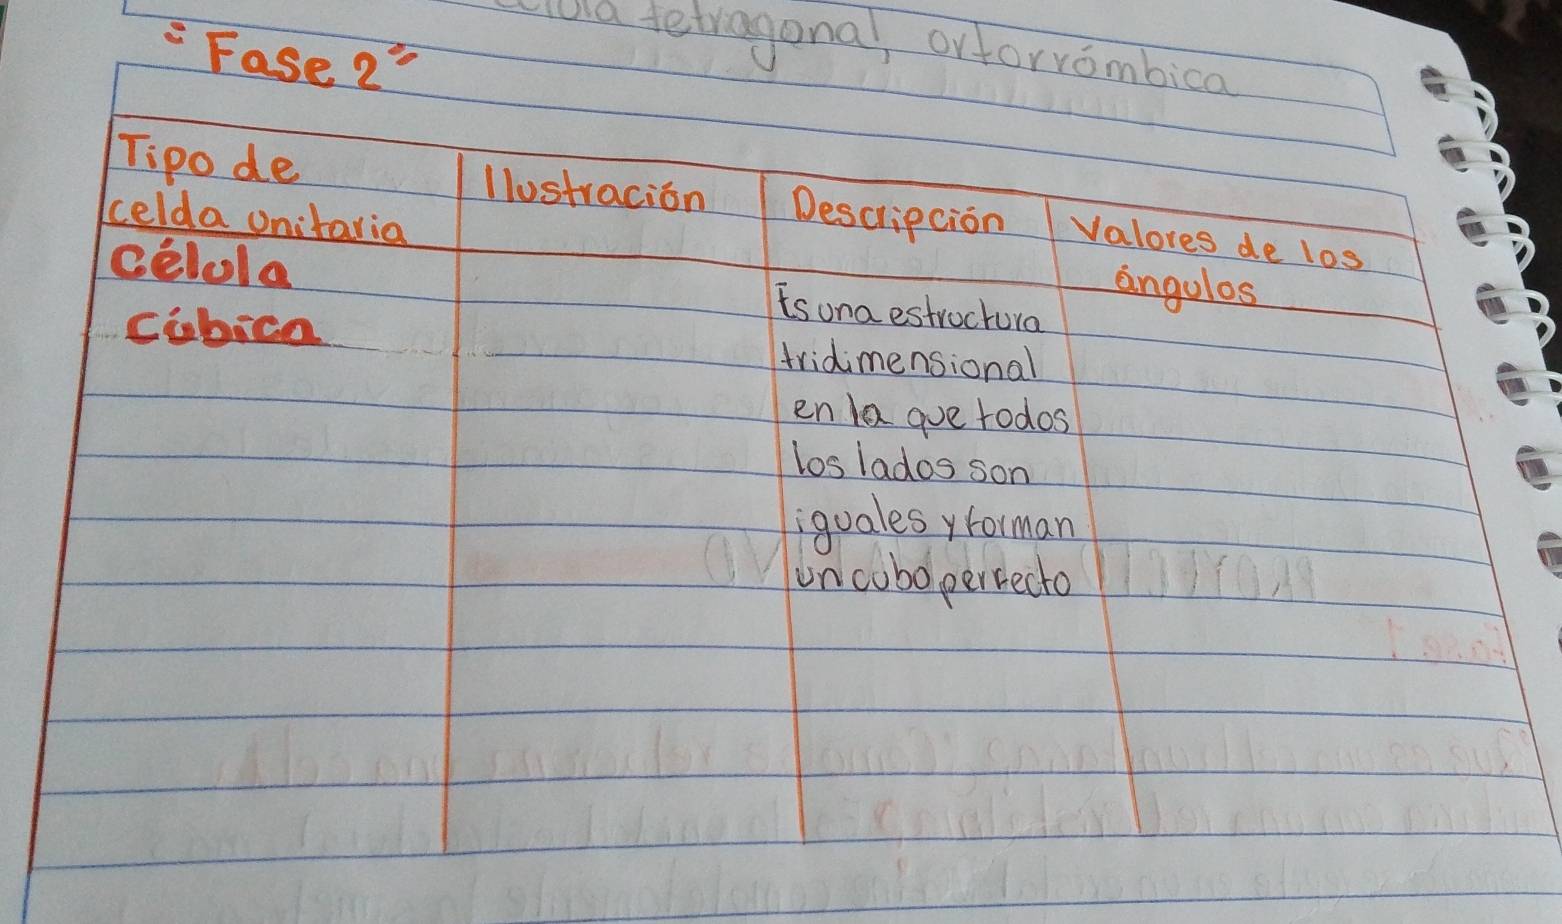 tetragonal, ortorrómbica
"Fase 2"
Tipo de
celda unitaria
Ilustración
Descripción
Valores de los
ángulos
célula
cúbica
Es una estructura
tridimensional
en la que todos
los lados son
iguales y forman
un cubo perfecto